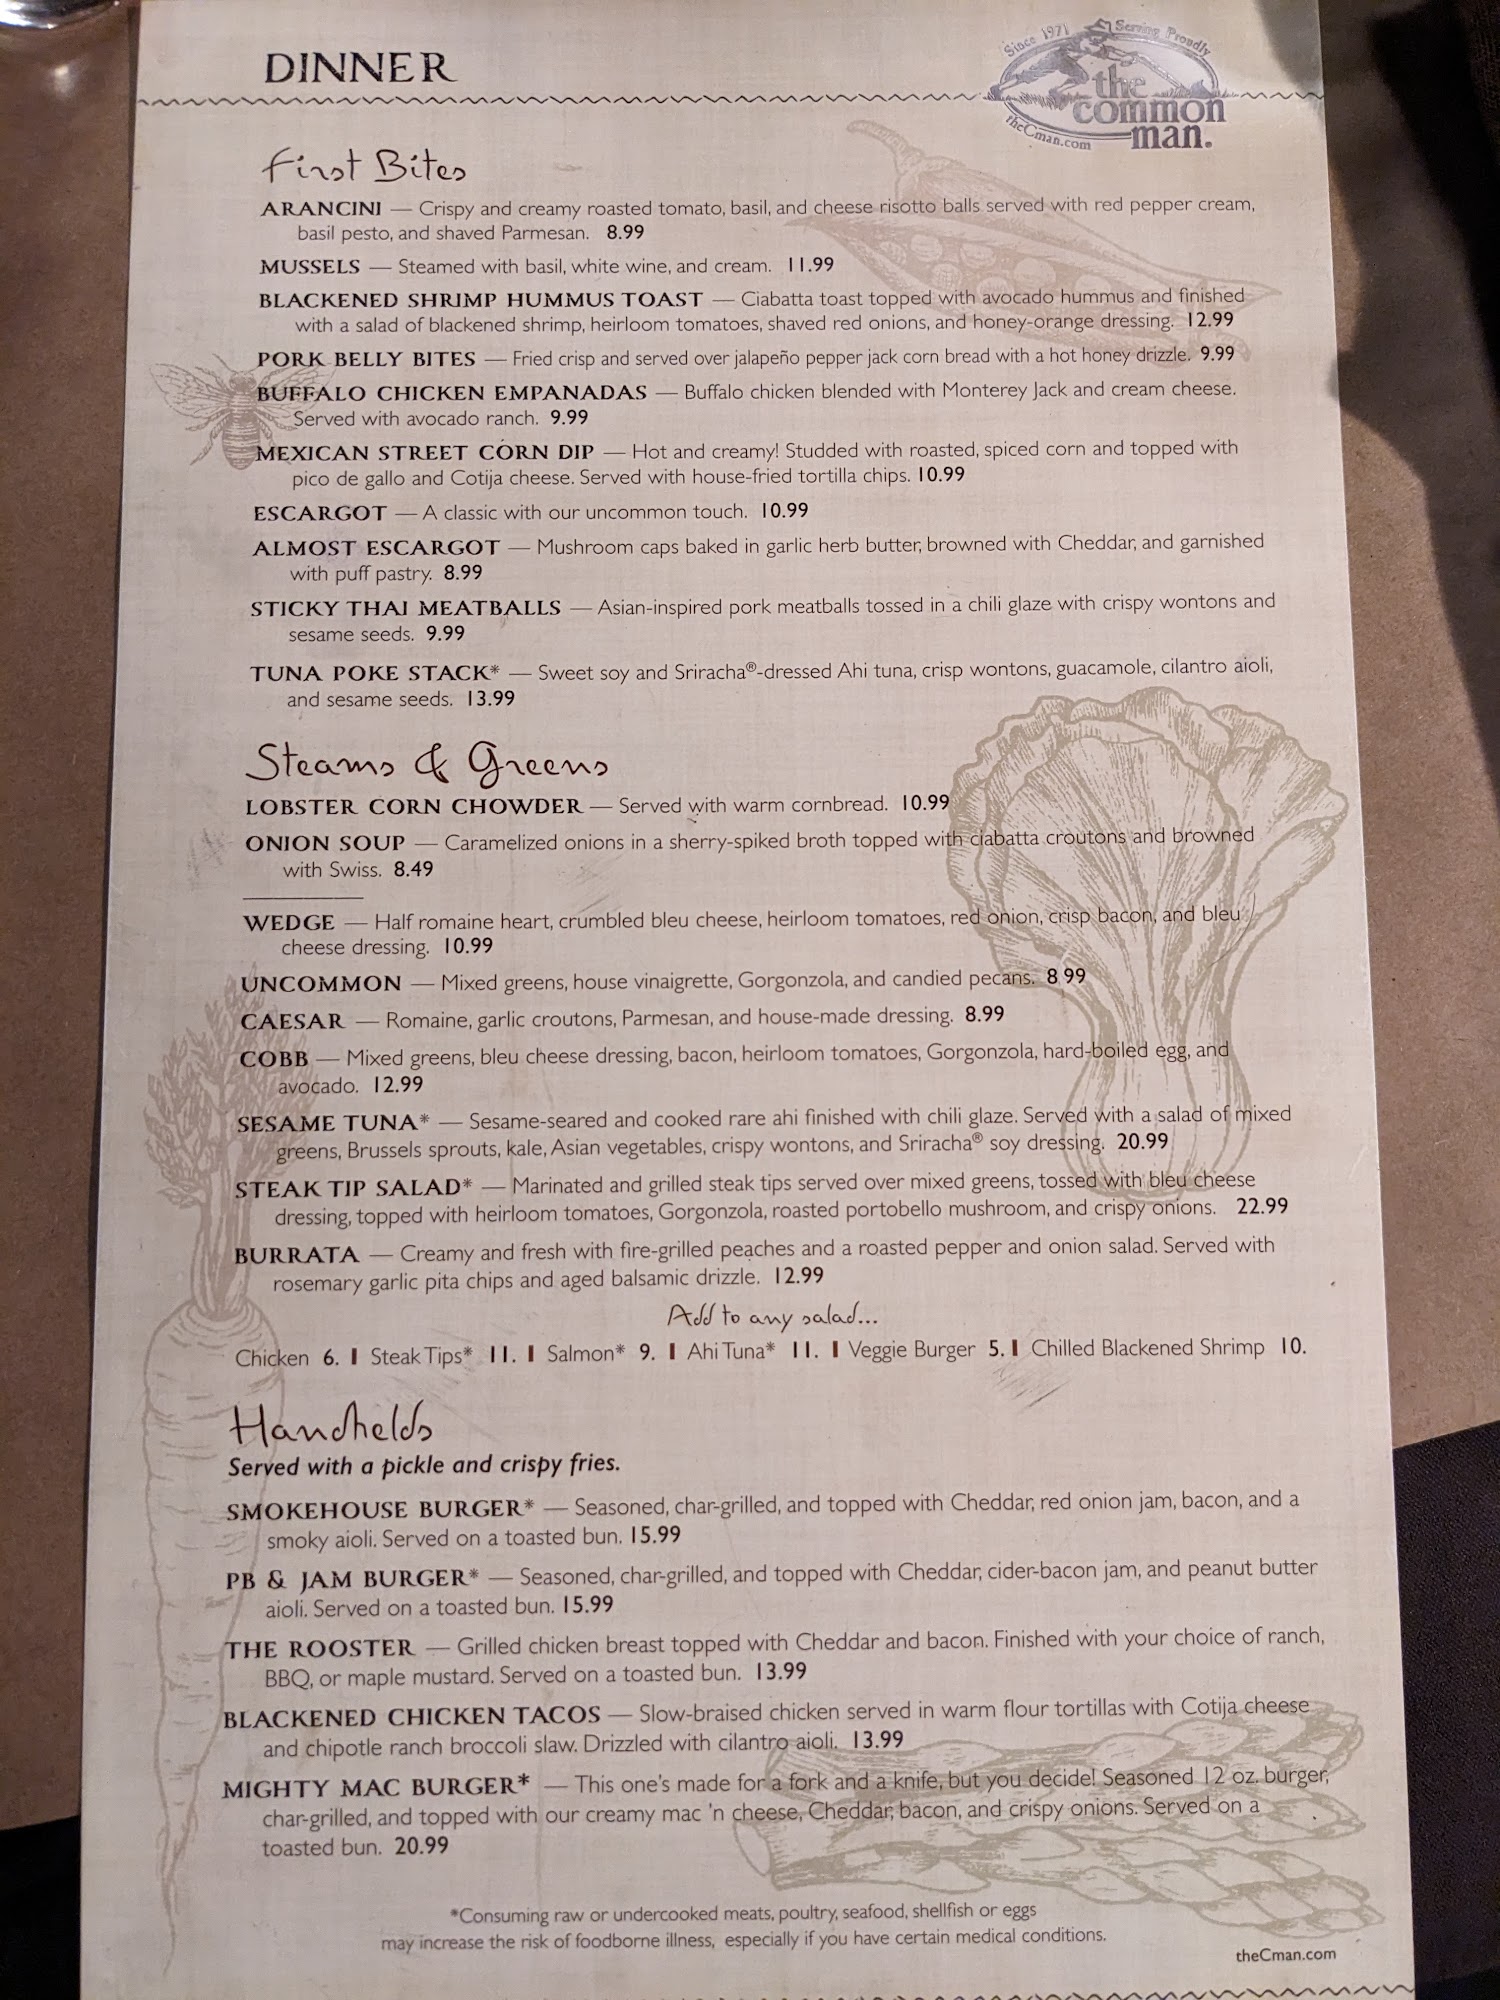 DINNER
Since 1971 Serving Proudly
the
common
man.
theCman.com
First Bites
ARANCINI — Crispy and creamy roasted tomato, basil, and cheese risotto balls served with red pepper cream,
basil pesto, and shaved Parmesan. 8.99
MUSSELS — Steamed with basil, white wine, and cream. 11.99
BLACKENED SHRIMP HUMMUS TOAST — Ciabatta toast topped with avocado hummus and finished
with a salad of blackened shrimp, heirloom tomatoes, shaved red onions, and honey-orange dressing. 12.99
PORK BELLY BITES — Fried crisp and served over jalapeño pepper jack corn bread with a hot honey drizzle. 9.99
BUFFALO CHICKEN EMPANADAS — Buffalo chicken blended with Monterey Jack and cream cheese.
Served with avocado ranch. 9.99
MEXICAN STREET CORN DIP — Hot and creamy! Studded with roasted, spiced corn and topped with
pico de gallo and Cotija cheese. Served with house-fried tortilla chips. 10.99
ESCARGOT — A classic with our uncommon touch. 10.99
ALMOST ESCARGOT — Mushroom caps baked in garlic herb butter, browned with Cheddar, and garnished
with puff pastry. 8.99
STICKY THAI MEATBALLS — Asian-inspired pork meatballs tossed in a chili glaze with crispy wontons and
sesame seeds. 9.99
TUNA POKE STACK* — Sweet soy and Sriracha®-dressed Ahi tuna, crisp wontons, guacamole, cilantro aioli,
and sesame seeds. 13.99
Steams & Greens
LOBSTER CORN CHOWDER — Served with warm cornbread. 10.99
ONION SOUP — Caramelized onions in a sherry-spiked broth topped with ciabatta croutons and browned
with Swiss. 8.49
WEDGE — Half romaine heart, crumbled bleu cheese, heirloom tomatoes, red onion, crisp bacon, and bleu
cheese dressing. 10.99
UNCOMMON — Mixed greens, house vinaigrette, Gorgonzola, and candied pecans. 8.99
CAESAR — Romaine, garlic croutons, Parmesan, and house-made dressing. 8.99
COBB — Mixed greens, bleu cheese dressing, bacon, heirloom tomatoes, Gorgonzola, hard-boiled egg, and
avocado. 12.99
SESAME TUNA* — Sesame-seared and cooked rare ahi finished with chili glaze. Served with a salad of mixed
greens, Brussels sprouts, kale, Asian vegetables, crispy wontons, and Sriracha® soy dressing. 20.99
STEAK TIP SALAD* — Marinated and grilled steak tips served over mixed greens, tossed with bleu cheese
dressing, topped with heirloom tomatoes, Gorgonzola, roasted portobello mushroom, and crispy onions. 22.99
BURRATA — Creamy and fresh with fire-grilled peaches and a roasted pepper and onion salad. Served with
rosemary garlic pita chips and aged balsamic drizzle. 12.99
Add to any salad...
Chicken 6. | Steak Tips* 11. | Salmon* 9. | Ahi Tuna* 11. | Veggie Burger 5. | Chilled Blackened Shrimp 10.
Handhelds
Served with a pickle and crispy fries.
SMOKEHOUSE BURGER* — Seasoned, char-grilled, and topped with Cheddar, red onion jam, bacon, and a
smoky aioli. Served on a toasted bun. 15.99
PB & JAM BURGER* — Seasoned, char-grilled, and topped with Cheddar, cider-bacon jam, and peanut butter
aioli. Served on a toasted bun. 15.99
THE ROOSTER — Grilled chicken breast topped with Cheddar and bacon. Finished with your choice of ranch,
BBQ, or maple mustard. Served on a toasted bun. 13.99
BLACKENED CHICKEN TACOS — Slow-braised chicken served in warm flour tortillas with Cotija cheese
and chipotle ranch broccoli slaw. Drizzled with cilantro aioli. 13.99
MIGHTY MAC BURGER* — This one's made for a fork and a knife, but you decide! Seasoned 12 oz. burger,
char-grilled, and topped with our creamy mac 'n cheese, Cheddar, bacon, and crispy onions. Served on a
toasted bun. 20.99
*Consuming raw or undercooked meats, poultry, seafood, shellfish or eggs
may increase the risk of foodborne illness, especially if you have certain medical conditions.
theCman.com